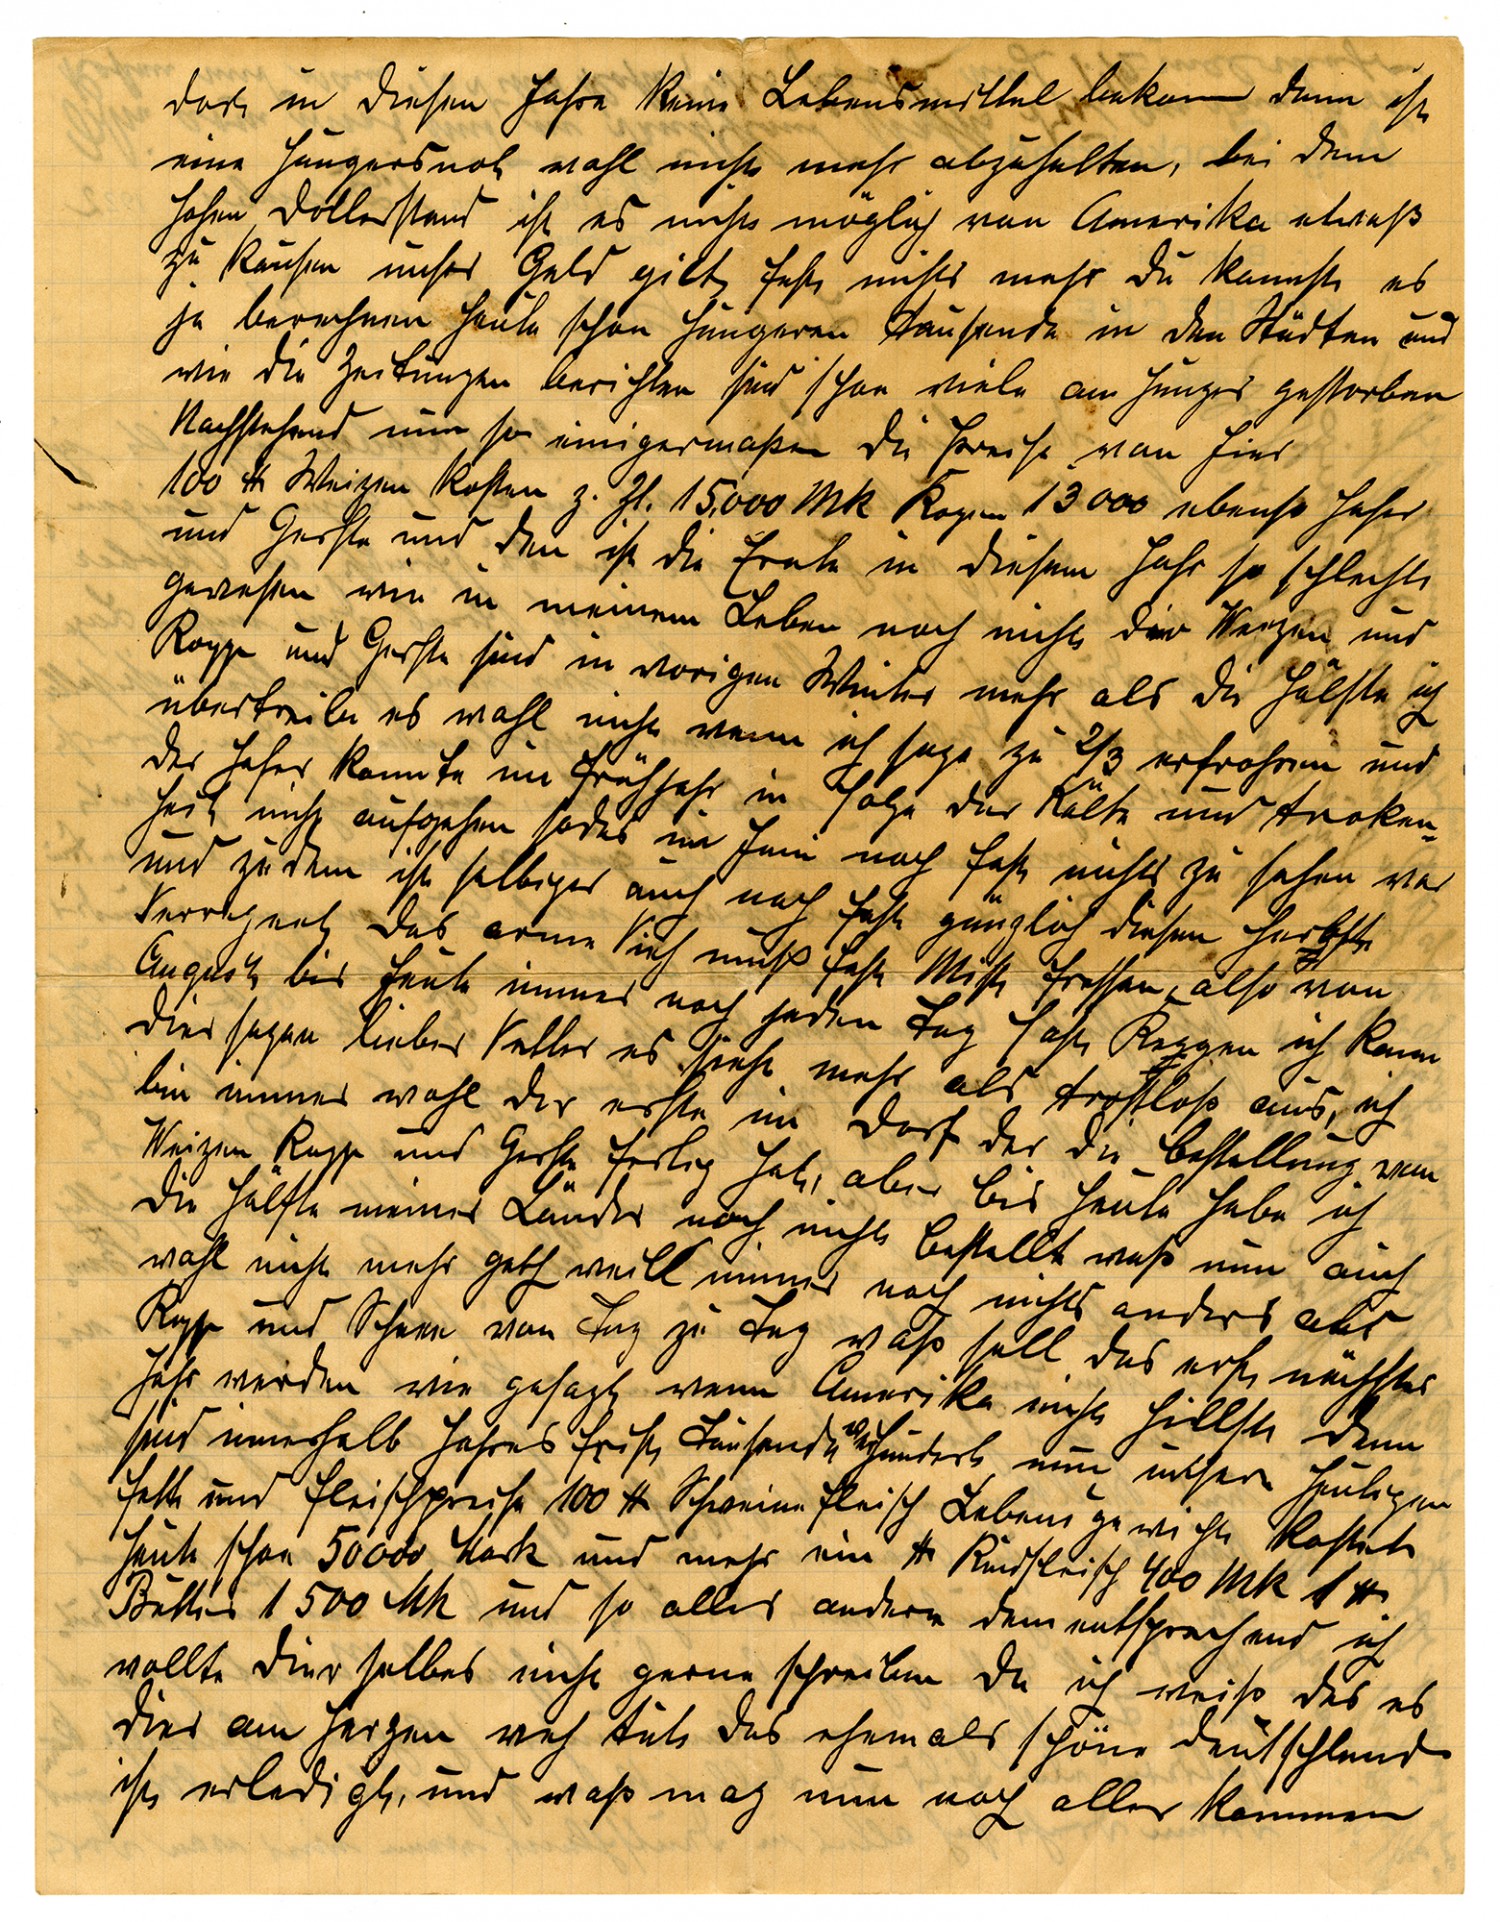 dort in diesen Jahre keine Lebensmittel bekom dann ist
eine Hungersnot wohl nicht mehr abzuhalten, bei dem
hohen Dollerstand ist es nicht möglich von Amerika etwaß
zu kaufen unser Geld gilt fast nichts mehr du kannst es
ja berechnen heute schon hungeren tausende in den Städten und
wie die Zeitungen berichten sind schon viele am Hunger gestorben
Nachstehend nun so einigermaßen die Preise von hier
100 ℔ Weizen kosten z. Zt. 15,000 Mk Rogen 13000 ebenso Hafer
und Gerste und den ist die Ernte in diesem Jahr so schlecht
gewesen wie in meinem Leben noch nicht der Weizen und
Rogge und Gerste sind in vorigen Winter mehr als die Hälfte ich
übertreibe es wohl nicht wenn ich sage zu 2/3 erfrohren und
der Hafer konnte im Frühjahr in folge der Kälte und troken=
heit nicht aufgehen sodas im Juni noch fast nichts zu sehen war
und zu dem ist selbiger auch noch fast gänzlich diesen Herbst
Verregent das arme Vieh muß fast Mist fressen, also von
August bis heute immer noch jeden Tag fast Reggen ich kann
dier sagen lieber Vetter es sieht mehr als trostloß aus, ich
bin immer wohl der erste im Dorf der die Bestellung von
Weizen Rogge und Gerste fertig hat, aber bis heute habe ich
die Hälfte meiner Länder noch nicht bestellt waß nun auch
wohl nicht mehr geth weill immer noch nichts anders als
und Schnee von Tag zu Tag waß soll das erst nächstes
Jahr werden wie gesagt wenn Amerika nicht hillft denn
sind innerhalb Jahres frist Tausende verhungert nun unsere heutigen
Fett und Fleischpreise 100 ℔ Schweine fleisch Lebens gewicht kostet
heute schon 50000 Mark und mehr ein ℔ Rindfleisch 400 Mk 1 ℔
Butter 1500 Mk und so alles andere dem entsprechend ich
wollte dier selbes nicht gerne schreiben da ich weiß das es
dier am Herzen weh tut das ehemals schöne Deutschland
ist erledigt, und waß mag nun noch alles kommen